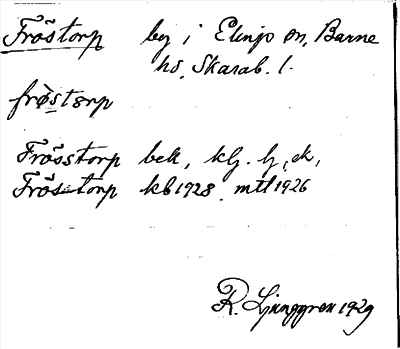 Fröstorp by i Elinjo sn, Barne
hd, Skarab. l.
frö̀stɷrp
Frösstorp bek, klj. lj, ek,
Fröstorp kb 1928. mtl 1926
R. Ljunggren 1929